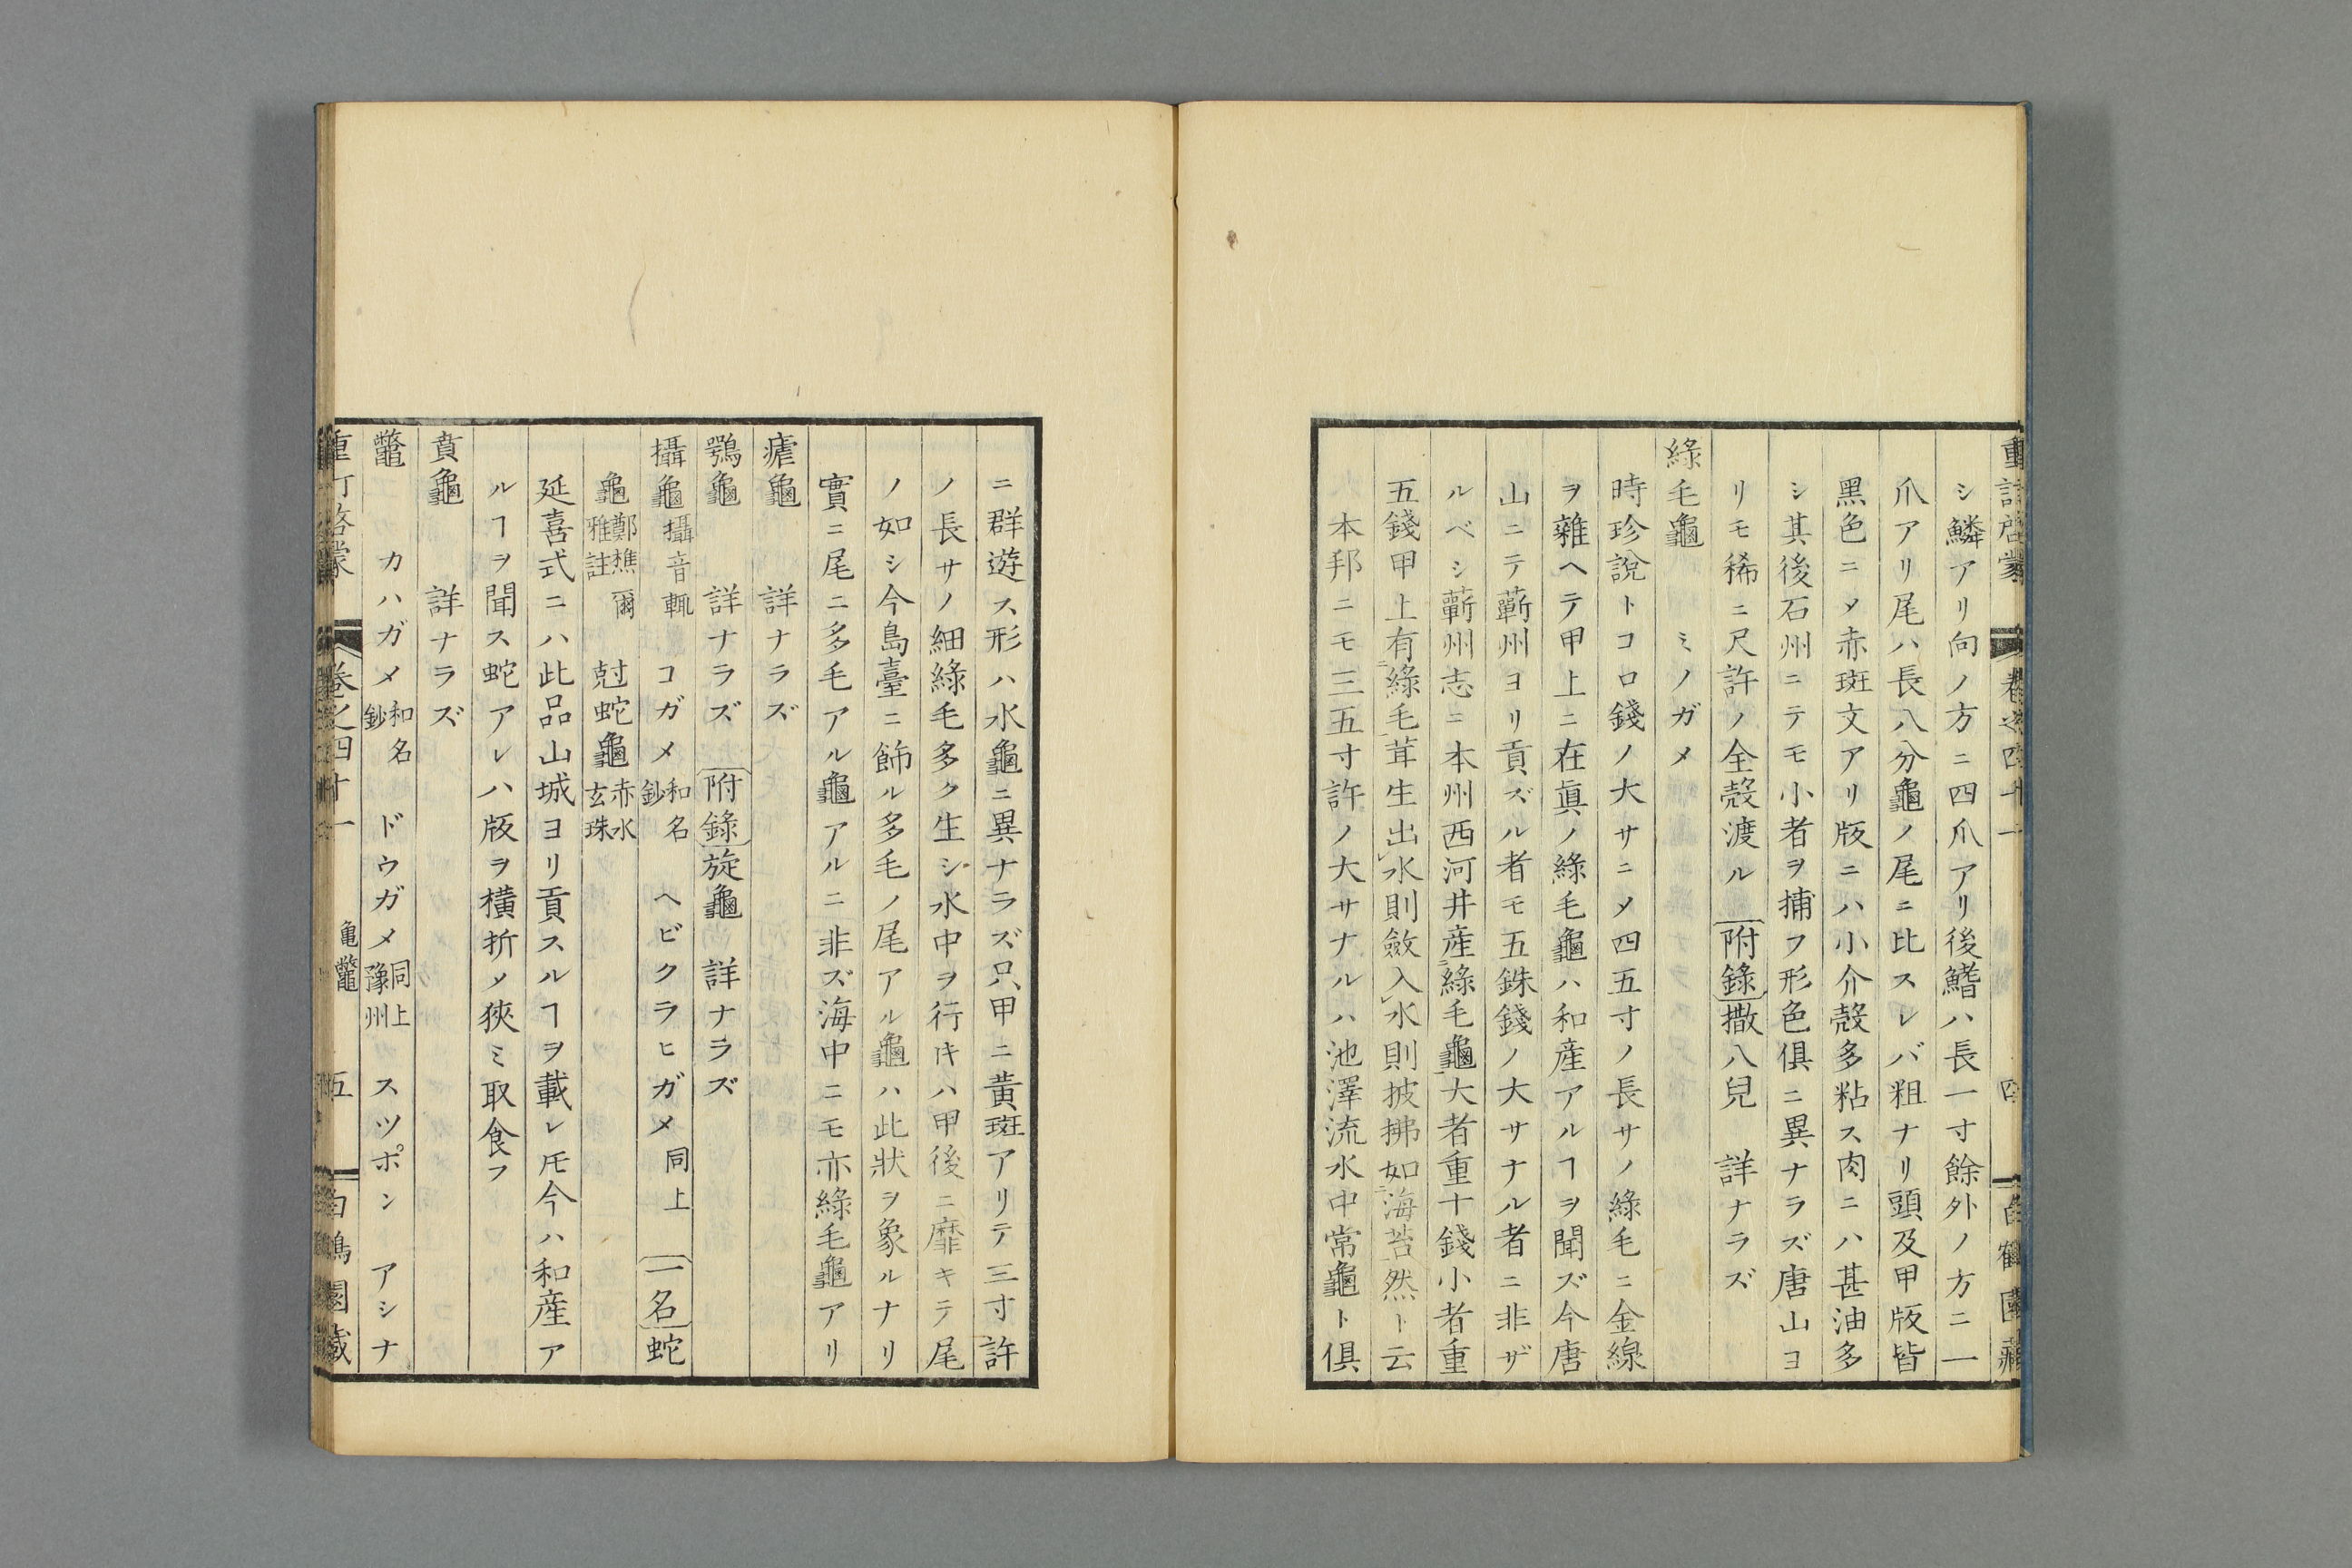 重訂啓蒙 卷之四十一 四 白鶴園藏
シ鱗アリ向ノ方ニ四爪アリ後鰭ハ長一寸餘外ノ方ニ一
爪アリ尾ハ長八分龜ノ尾ニ比スレバ粗ナリ頭及甲版皆
黒色ニメ赤斑文アリ版ニハ小介殻多粘ス肉ニハ甚油多
シ其後石州ニテモ小者ヲ捕フ形色俱ニ異ナラズ唐山ヨ
リモ稀ニ尺許ノ全殻渡ル 附錄 撒八兒 詳ナラズ
綠毛龜 ミノガメ
時珍說トコロ錢ノ大サニメ四五寸ノ長サノ綠毛ニ金線
ヲ雜ヘテ甲上ニ在眞ノ綠毛龜ハ和産アルヿヲ聞ズ今唐
山ニテ蘄州ヨリ貢ズル者モ五銖錢ノ大サナル者ニ非ザ
ルベシ蘄州志ニ本州西河井産綠毛龜大者重十錢小者重
五錢甲上有綠毛茸生出水則斂入水則披拂如海苔然ト云
本邦ニモ三五寸許ノ大サナルハ池澤流水中常龜ト俱
ニ群遊ス形ハ水龜ニ異ナラズ只甲ニ黃斑アリテ三寸許
ノ長サノ細綠毛多ク生ジ水中ヲ行キハ甲後ニ靡キテ尾
ノ如シ今島臺ニ飾ル多毛ノ尾アル龜ハ此狀ヲ象ルナリ
實ニ尾ニ多毛アル龜アルニ非ズ海中ニモ亦綠毛龜アリ
瘧龜 詳ナラズ
鶚龜 詳ナラズ 附錄 旋龜 詳ナラズ
攝龜 攝音輒 コガメ 和名鈔 ヘビクラヒガメ 同上 一名 蛇
龜 鄭樵爾雅註 尅蛇龜 赤水玄珠
延喜式ニハ此品山城ヨリ貢スルヿヲ載レ𪜈今ハ和産ア
ルヿヲ聞ス蛇アレハ版ヲ横折メ狹ミ取食フ
賁龜 詳ナラズ
鼈 カハガメ 和名鈔 ドウガメ 同上豫州 スツポン アシナ
重訂啓蒙 卷之四十一 亀鼈 五 白鶴園藏